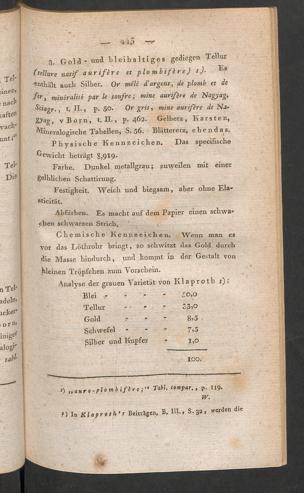 — 445 —
3. Gold- und bleihaltiges gediegen Tellur
(tellure natif aurifère et plombifère) 1). Es
enthält auch Silber. Or mêlé d'argent, de plomb et de
fer, minéralisé par le soufre; mine aurifère de Nagyag,
Sciagr., t. II., p. 50. Or gris, mine aurifère de Na-
gyag, v Born, t. II., p. 462. Gelberz, Karsten,
Mineralogische Tabellen, S. 56. Blättererz, ebendas.
Physische Kennzeichen. Das specifische
Gewicht beträgt 8,919.
Farbe. Dunkel metallgrau; zuweilen mit einer
gelblichen Schattirung.
Festigkeit. Weich und biegsam, aber ohne Ela-
sticität.
Abfärben. Es macht auf dem Papier einen schwa-
chen schwarzen Strich.
Chemische Kennzeichen. Wenn man es
vor das Löthrohr bringt, so schwitzt das Gold durch
die Masse hindurch, und kommt in der Gestalt von
kleinen Tröpfchen zum Vorschein.
Analyse der grauen Varietät von Klaproth 2):
Blei - - - - 50,0
Tellur - - - - 33,0
Gold - - - - 8,5
Schwefel - - - 7,5
Silber und Kupfer - - 1,0
100.
1) „auro-plombifère;“ Tabl. compar., p. 119.
W.
2) In Klaproth's Beiträgen, B. III., S. 32, werden die